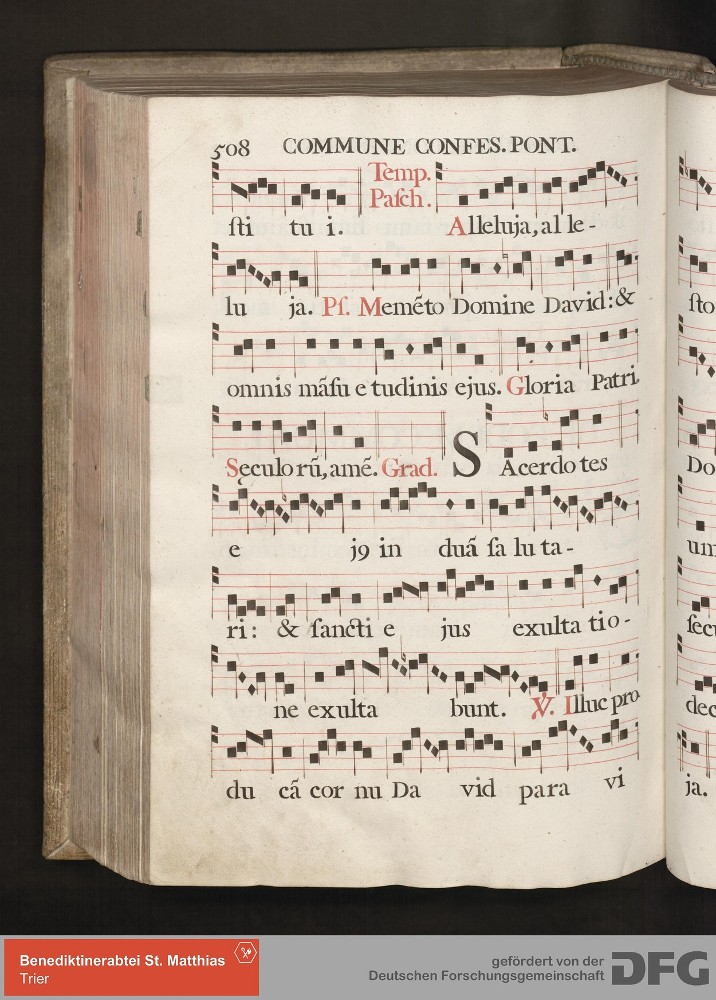 508 COMMUNE CONFES. PONT.
Temp.
Pasch.
sti tu i. Alleluja, al le-
lu ja. Ps. Memẽto Domine David: &
omnis mãsu e tudinis ejus. Gloria Patri.
Seculo rũ, amẽ. Grad. SAcerdo tes
e j9 in duã sa lu ta-
ri: & sancti e jus exulta tio-
ne exulta bunt. V. Illuc pro
du cã cor nu Da vid para vi
sto
Do
um
secu
dec
ja.
Benediktinerabtei St. Matthias
Trier
gefördert von der
Deutschen Forschungsgemeinschaft
DFG